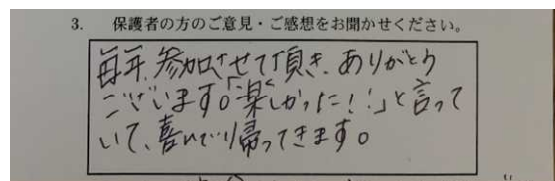 3. 保護者の方のご意見・ご感想をお聞かせください。
毎年、参加させて頂き、ありがとう
ございます。「楽しかった!!」と言って
いて、喜んで帰ってきます。